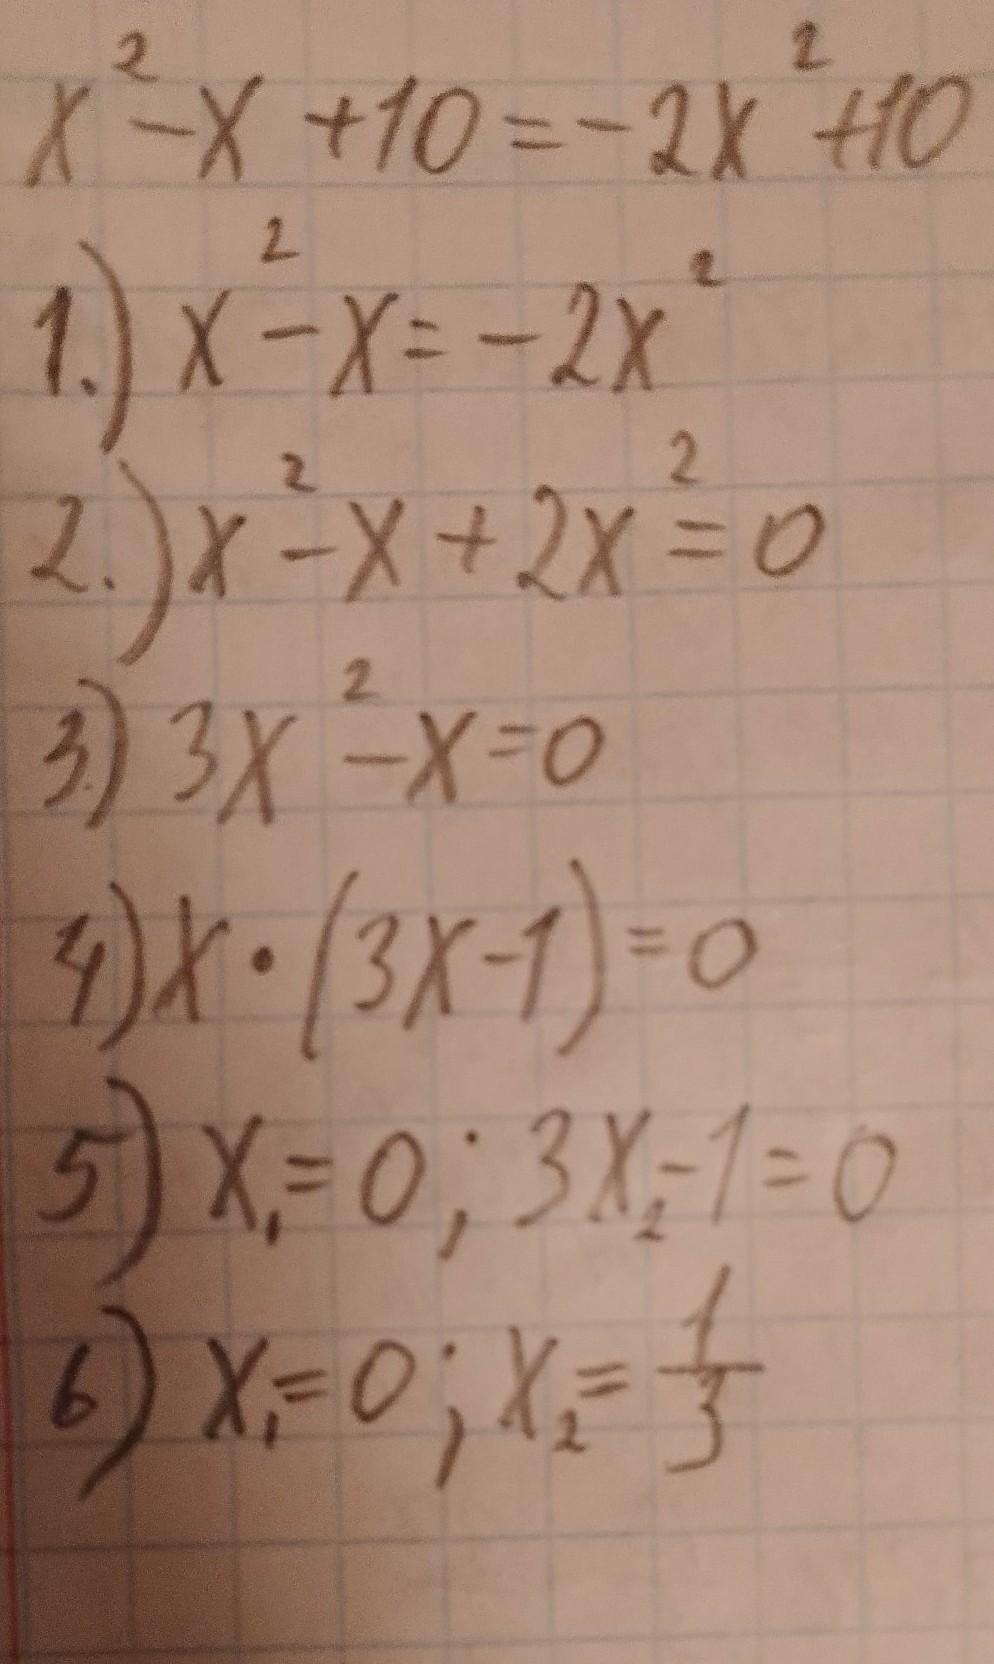 x² - x + 10 = -2x² + 10
1.) x² - x = -2x²
2.) x² - x + 2x² = 0
3.) 3x² - x = 0
4) x · (3x - 1) = 0
5) x₁ = 0; 3x₂ - 1 = 0
6) x₁ = 0; x₂ = 1/3